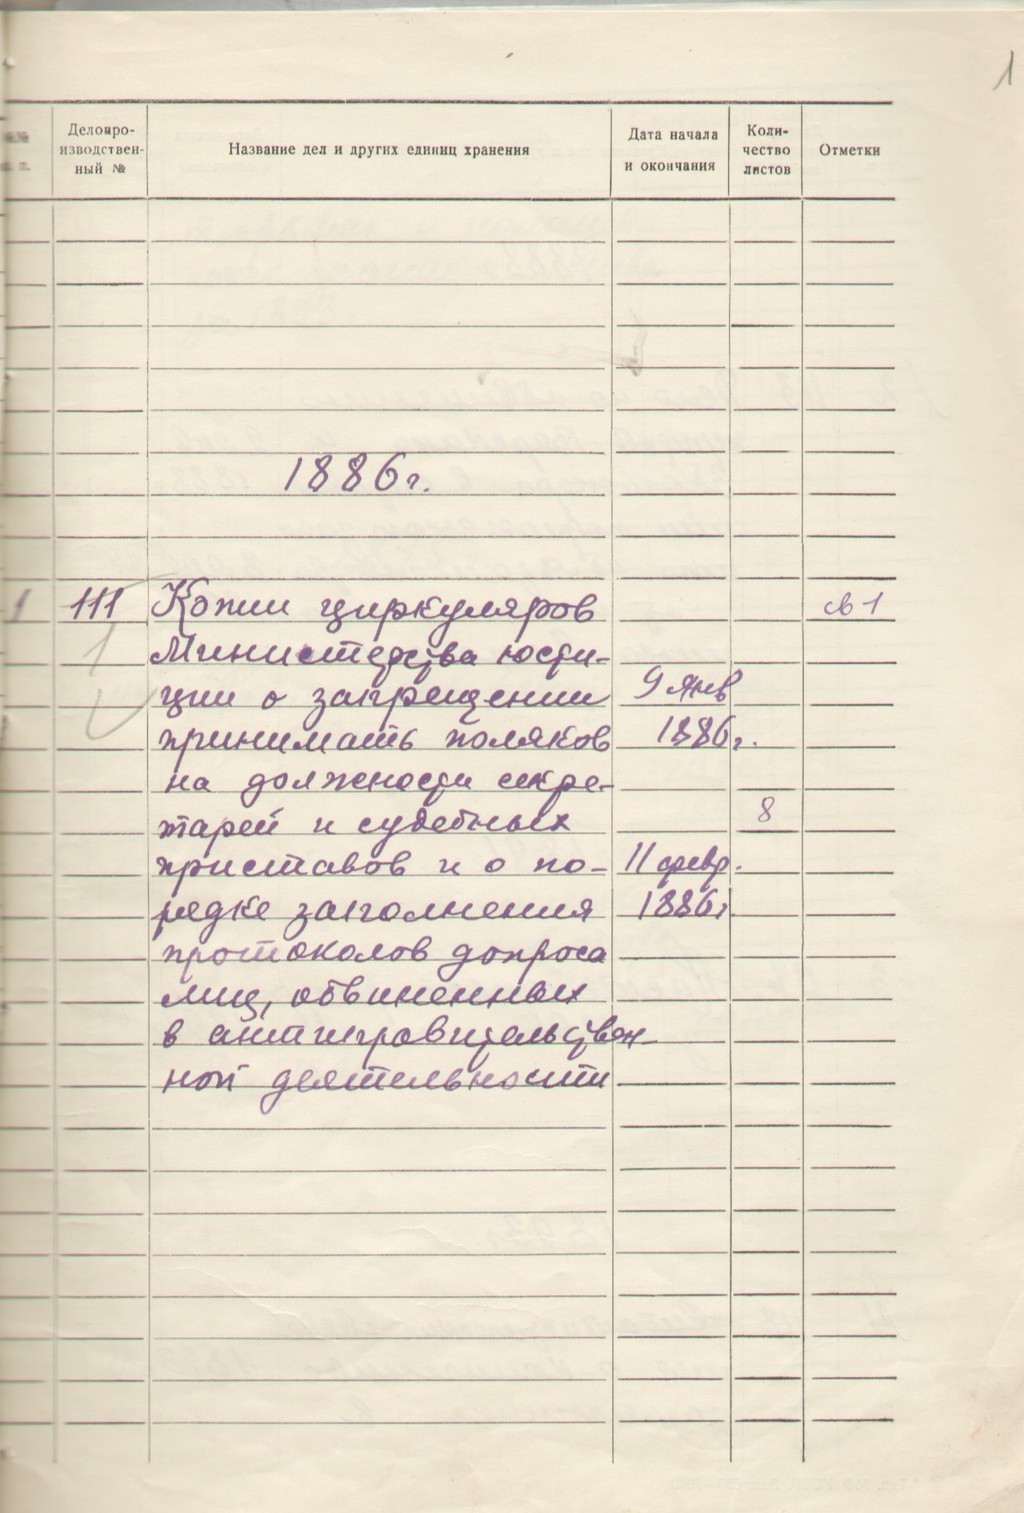 1
Делопро-
изводствен-
ный №
Название дел и других единиц хранения
Дата начала
и окончания
Коли-
чество
листов
Отметки
1886 г.
1 111 Копии циркуляров св 1
1 Министерства юсти-
ции о запрещении 9 янв
принимать поляков 1886 г.
на должности секре-
тарей и судебных 8
приставов и о по- 11 февр.
рядке заполнения 1886 г.
протоколов допроса
лиц, обвиненных
в антиправительствен-
ной деятельности